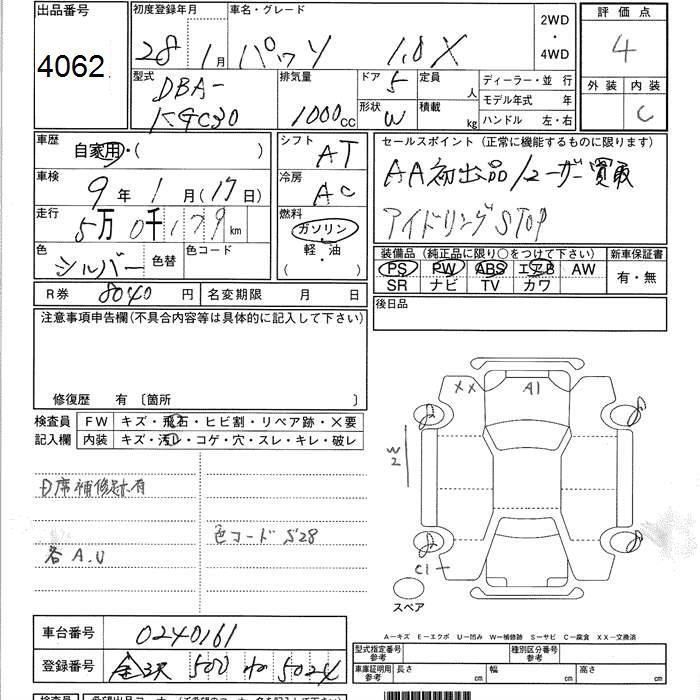 出品番号
4062
初度登録年月
28 1月
車名・グレード
パッソ 1.0X
2WD
・
4WD
評価点
4
外装 内装
C
型式
DBA-
KGC30
排気量
1000 CC
ドア 5
形状 W
定員 人
積載 kg
ディーラー・並行
モデル年式 年
ハンドル 左・右
車歴
自家用・( )
車検
9年 1月(17日)
走行
5万0千179km
色
シルバー
色替
色コード
シフト
AT
冷房
AC
燃料
ガソリン
(軽・油)
セールスポイント(正常に機能するものに限ります)
AA初出品/ユーザー買取
アイドリングSTOP
装備品(純正品に限り○をつけて下さい)
PS PW ABS エアB AW
SR ナビ TV カワ
新車保証書
有・無
R券 8040円
名変期限 月 日
後日品
注意事項申告欄(不具合内容等は具体的に記入して下さい)
修復歴 有〔箇所 〕
検査員
記入欄
FW キズ・飛石・ヒビ割・リペア跡・X要
内装 キズ・汚レ・コゲ・穴・スレ・キレ・破レ
D席補修跡有
色コード S28
各A.U
XX
A1
W2
C1
スペア
A－キズ E－エクボ U－凹み W－補修跡 S－サビ C－腐食 XX－交換済
車台番号
0240161
登録番号
金沢 500 5024
型式指定番号
参考
種別区分番号
参考
車庫証明用
参考
長さ
幅
高さ
検査員